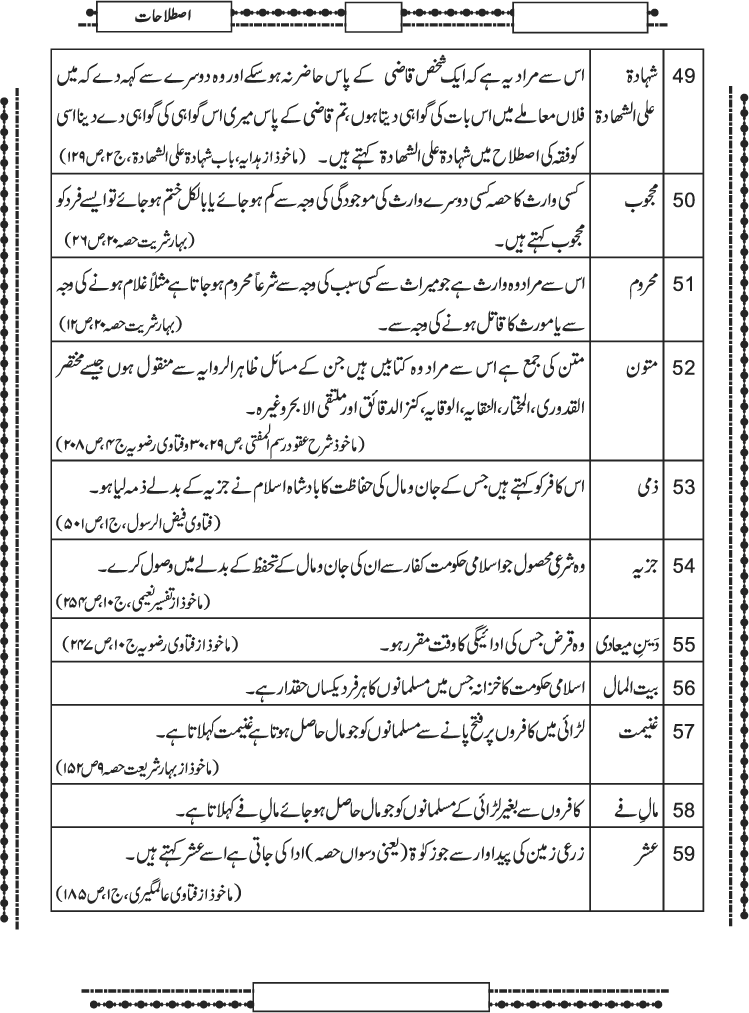 اصطلاحات
49 شہادۃ علی الشھادۃ اس سے مراد یہ ہے کہ ایک شخص قاضی کے پاس حاضر نہ ہو سکے اور وہ دوسرے سے کہہ دے کہ میں
فلاں معاملے میں اس بات کی گواہی دیتا ہوں، تم قاضی کے پاس میری اس گواہی کی گواہی دے دینا اسی
کو فقہ کی اصطلاح میں شہادۃ علی الشھادۃ کہتے ہیں۔ (ماخوذ از ہدایہ، باب شہادۃ علی الشھادۃ، ج۲، ص۱۲۹)
50 محجوب کسی وارث کا حصہ کسی دوسرے وارث کی موجودگی کی وجہ سے کم ہو جائے یا بالکل ختم ہو جائے تو ایسے فرد کو
محجوب کہتے ہیں۔ (بہار شریت حصہ ۲۰، ص۲۶)
51 محروم اس سے مراد وہ وارث ہے جو میراث سے کسی سبب کی وجہ سے شرعاً محروم ہو جاتا ہے مثلاً غلام ہونے کی وجہ
سے یا مورث کا قاتل ہونے کی وجہ سے۔ (بہار شریت حصہ ۲۰، ص۱۲)
52 متون متن کی جمع ہے اس سے مراد وہ کتابیں ہیں جن کے مسائل ظاہر الروایہ سے منقول ہوں جیسے مختصر
القدوری، المختار، النقایہ، الوقایہ، کنز الدقائق اور ملتقی الابحر وغیرہ۔
(ماخوذ شرح عقود رسم المفتی، ص ۲۹، ۳۰ و فتاوی رضویہ ج۴، ص ۲۰۸)
53 ذمی اس کافر کو کہتے ہیں جس کے جان و مال کی حفاظت کا بادشاہ اسلام نے جزیہ کے بدلے ذمہ لیا ہو۔
(فتاوی فیض الرسول، ج۱، ص۵۰۱)
54 جزیہ وہ شرعی محصول جو اسلامی حکومت کفار سے ان کی جان و مال کے تحفظ کے بدلے میں وصول کرے۔
(ماخوذ از تفسیر نعیمی، ج۱۰، ص۲۵۴)
55 دَینِ میعادی وہ قرض جس کی ادائیگی کا وقت مقرر ہو۔ (ماخوذ از فتاوی رضویہ ج۱۰، ص ۲۴۷)
56 بیت المال اسلامی حکومت کا خزانہ جس میں مسلمانوں کا ہر فرد یکساں حقدار ہے۔
57 غنیمت لڑائی میں کافروں پر فتح پانے سے مسلمانوں کو جو مال حاصل ہوتا ہے غنیمت کہلاتا ہے۔
(ماخوذ از بہار شریعت حصہ ۹ ص۱۵۲)
58 مالِ فے کافروں سے بغیر لڑائی کے مسلمانوں کو جو مال حاصل ہو جائے مالِ فے کہلاتا ہے۔
59 عشر زرعی زمین کی پیداوار سے جو زکوٰۃ (یعنی دسواں حصہ) ادا کی جاتی ہے اسے عشر کہتے ہیں۔
(ماخوذ از فتاوی عالمگیری، ج۱، ص ۱۸۵)